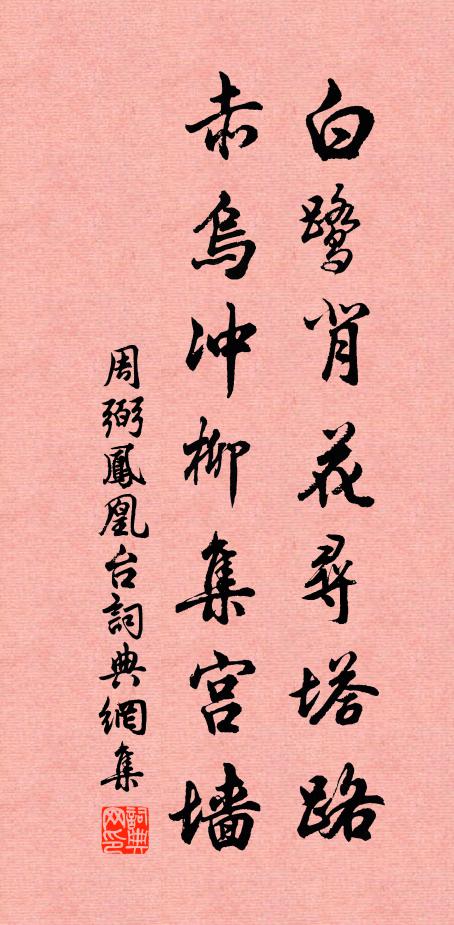 白鷺背花尋塔路
赤烏冲柳集宫墻
周弼鳳凰台詞典網集
詞典网印